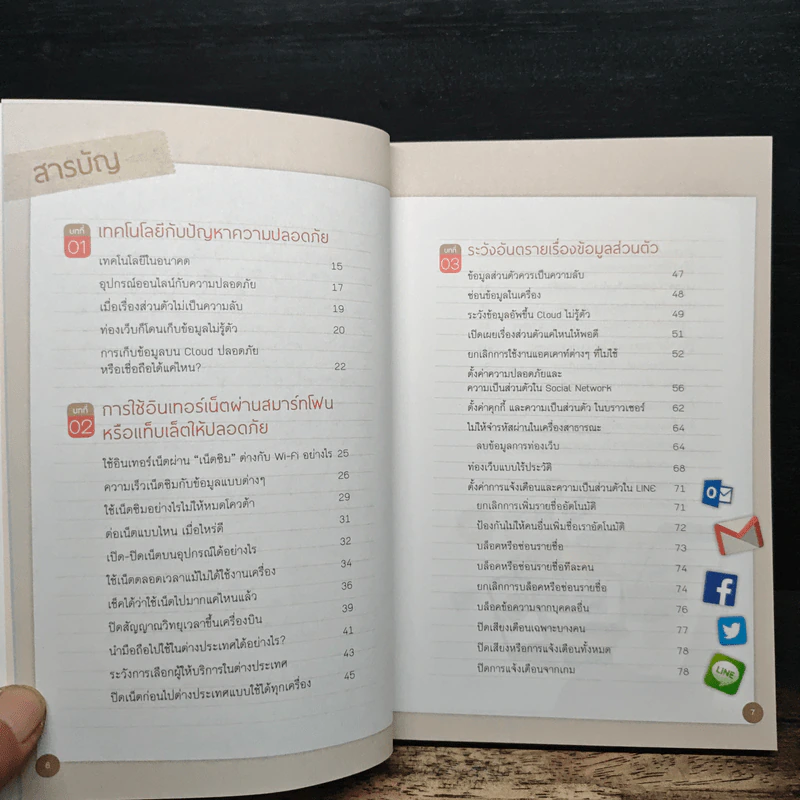 สารบัญ
บทที่ 01 เทคโนโลยีกับปัญหาความปลอดภัย
เทคโนโลยีในอนาคต 15
อุปกรณ์ออนไลน์กับความปลอดภัย 17
เมื่อเรื่องส่วนตัวไม่เป็นความลับ 19
ท่องเว็บก็โดนเก็บข้อมูลไม่รู้ตัว 20
การเก็บข้อมูลบน Cloud ปลอดภัย
หรือเชื่อถือได้แค่ไหน? 22
บทที่ 02 การใช้อินเทอร์เน็ตผ่านสมาร์ทโฟน
หรือแท็บเล็ตให้ปลอดภัย
ใช้อินเทอร์เน็ตผ่าน “เน็ตซิม” ต่างกับ Wi-Fi อย่างไร 25
ความเร็วเน็ตซิมกับข้อมูลแบบต่างๆ 26
ใช้เน็ตซิมอย่างไรไม่ให้หมดโควต้า 29
ต่อเน็ตแบบไหน เมื่อไหร่ดี 31
เปิด-ปิดเน็ตบนอุปกรณ์ได้อย่างไร 32
ใช้เน็ตตลอดเวลาแม้ไม่ได้ใช้งานเครื่อง 34
เช็คได้ว่าใช้เน็ตไปมากแค่ไหนแล้ว 36
ปิดสัญญาณวิทยุเวลาขึ้นเครื่องบิน 39
นำมือถือไปใช้ในต่างประเทศได้อย่างไร? 41
ระวังการเลือกผู้ให้บริการในต่างประเทศ 43
ปิดเน็ตก่อนไปต่างประเทศแบบใช้ได้ทุกเครื่อง 45
6
บทที่ 03 ระวังอันตรายเรื่องข้อมูลส่วนตัว
ข้อมูลส่วนตัวควรเป็นความลับ 47
ซ่อนข้อมูลในเครื่อง 48
ระวังข้อมูลอัพขึ้น Cloud ไม่รู้ตัว 49
เปิดเผยเรื่องส่วนตัวแค่ไหนให้พอดี 51
ยกเลิกการใช้งานแอคเคาท์ต่างๆ ที่ไม่ใช้ 52
ตั้งค่าความปลอดภัยและ
ความเป็นส่วนตัวใน Social Network 56
ตั้งค่าคุกกี้ และความเป็นส่วนตัว ในบราวเซอร์ 62
ไม่ให้จำรหัสผ่านในเครื่องสาธารณะ 64
ลบข้อมูลการท่องเว็บ 64
ท่องเว็บแบบไร้ประวัติ 68
ตั้งค่าการแจ้งเตือนและความเป็นส่วนตัวใน LINE 71
ยกเลิกการเพิ่มรายชื่ออัตโนมัติ 71
ป้องกันไม่ให้คนอื่นเพิ่มชื่อเราอัตโนมัติ 72
บล็อคหรือซ่อนรายชื่อ 73
บล็อคหรือซ่อนรายชื่อทีละคน 74
ยกเลิกการบล็อคหรือซ่อนรายชื่อ 74
บล็อคข้อความจากบุคคลอื่น 76
ปิดเสียงเตือนเฉพาะบางคน 77
ปิดเสียงหรือการแจ้งเตือนทั้งหมด 78
ปิดการแจ้งเตือนจากเกม 78
LINE
7